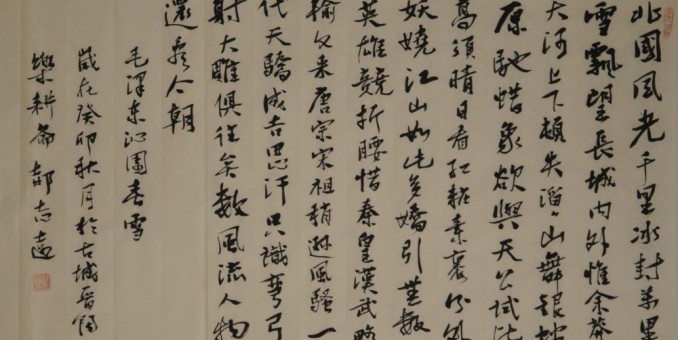 北國風光千里冰封萬里
雪飄望長城內外惟余莽
大河上下頓失滔〻山舞銀蛇
原馳蜡象欲與天公試比
高須晴日看紅粧素裹分外
妖嬈江山如此多嬌引無數
英雄競折腰惜秦皇漢武略
輸文采唐宗宋祖稍遜風騷一
代天驕成吉思汗只識彎弓
射大雕俱往矣數風流人物
還看今朝
毛澤東沁園春雪
歲在癸卯秋月於古城晉陽
樂耕齋 志遠